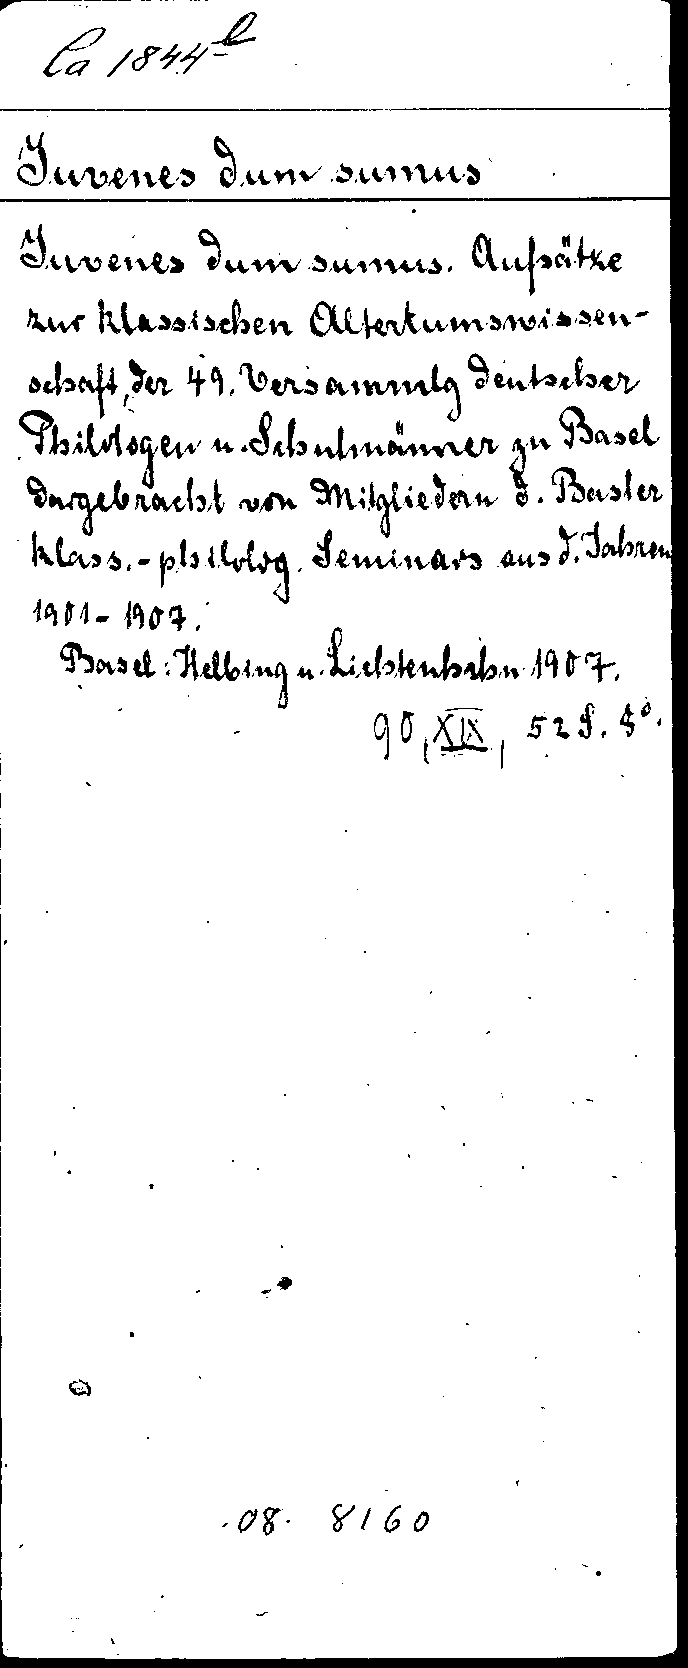 Ca 1844 b
Juvenes dum sumus
Juvenes dum sumus. Aufsätze
zur klassischen Altertumswissen-
schaft, der 49. Versammlg deutscher
Philologen u. Schulmänner zu Basel
dargebracht von Mitgliedern d. Basler
klass.-philolog. Seminars aus d. Jahren
1901-1907.
Basel: Helbing u. Lichtenhahn 1907.
90, XIX, 52 S. 8°.
08. 8160